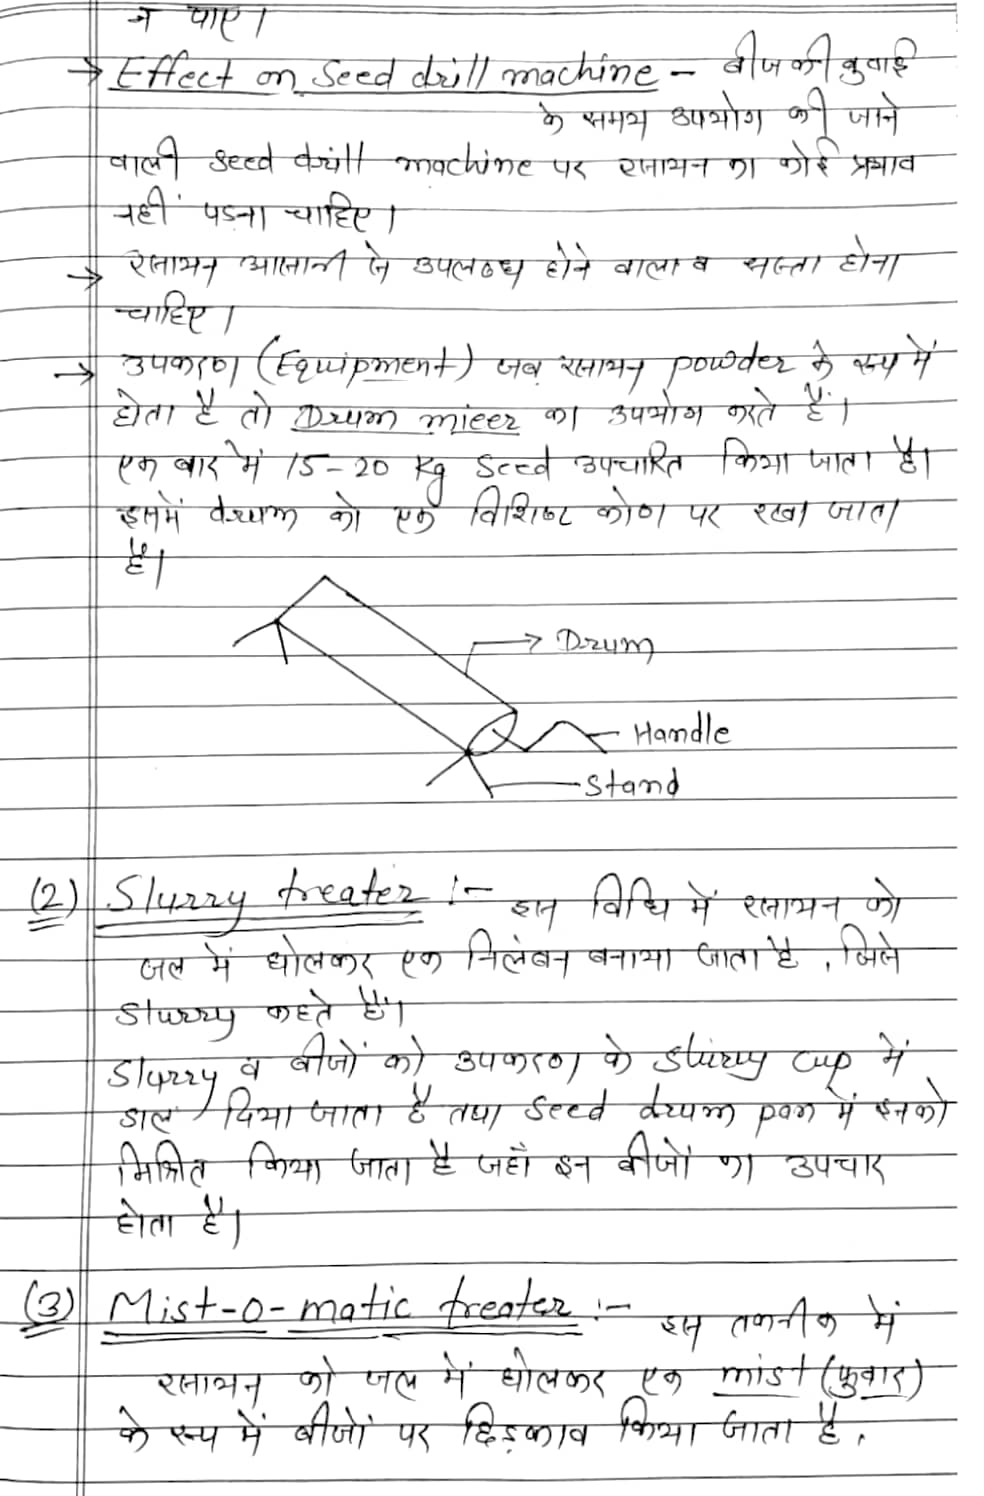 न पाए।
→ Effect on seed drill machine – बीज की बुवाई
के समय उपयोग की जाने
वाली seed drill machine पर रसायन का कोई प्रभाव
नहीं पडना चाहिए।
→ रसायन आसानी से उपलब्ध होने वाला व सस्ता होना
चाहिए।
→ उपकरण (Equipment) जब रसायन powder के रूप में
होता है तो Drum mixer का उपयोग करते हैं।
एक बार में 15-20 Kg Seed उपचारित किया जाता है।
इसमें drum को एक विशिष्ट कोण पर रखा जाता
है।
→ Drum
Handle
Stand
(2) Slurry treater :- इस विधि में रसायन को
जल में घोलकर एक निलंबन बनाया जाता है, जिसे
Slurry कहते हैं।
Slurry व बीजों को उपकरण के slurry cup में
डाल दिया जाता है तथा seed drum pan में इनको
मिश्रित किया जाता है जहाँ इन बीजों का उपचार
होता है।
(3) Mist-o-matic treater :- इस तकनीक में
रसायन को जल में घोलकर एक mist (फुवार)
के रूप में बीजों पर छिड़काव किया जाता है.